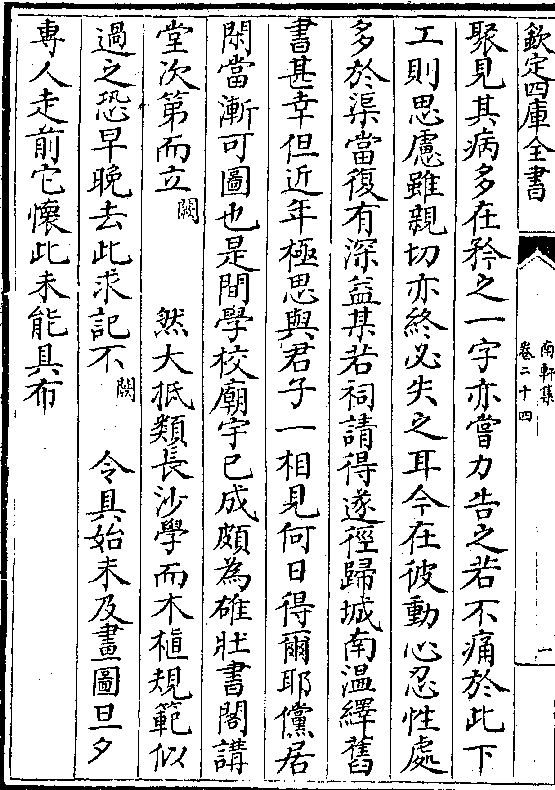 欽定四庫全書
南軒集
卷二十四
一
聚見其病多在矜之一字亦嘗力告之若不痛於此下
工則思慮雖親切亦終必失之耳今在彼動心忍性處
多於渠當復有深益某若祠請得遂徑歸城南温繹舊
書甚幸但近年極思與君子一相見何日得爾耶儻居
閑當漸可圖也是間學校廟宇已成頗為碓壯書閣講
堂次第而立闕 然大抵類長沙學而木植規範似
過之恐早晚去此求記不闕 令具始末及畫圖旦夕
專人走前它懷此未能具布